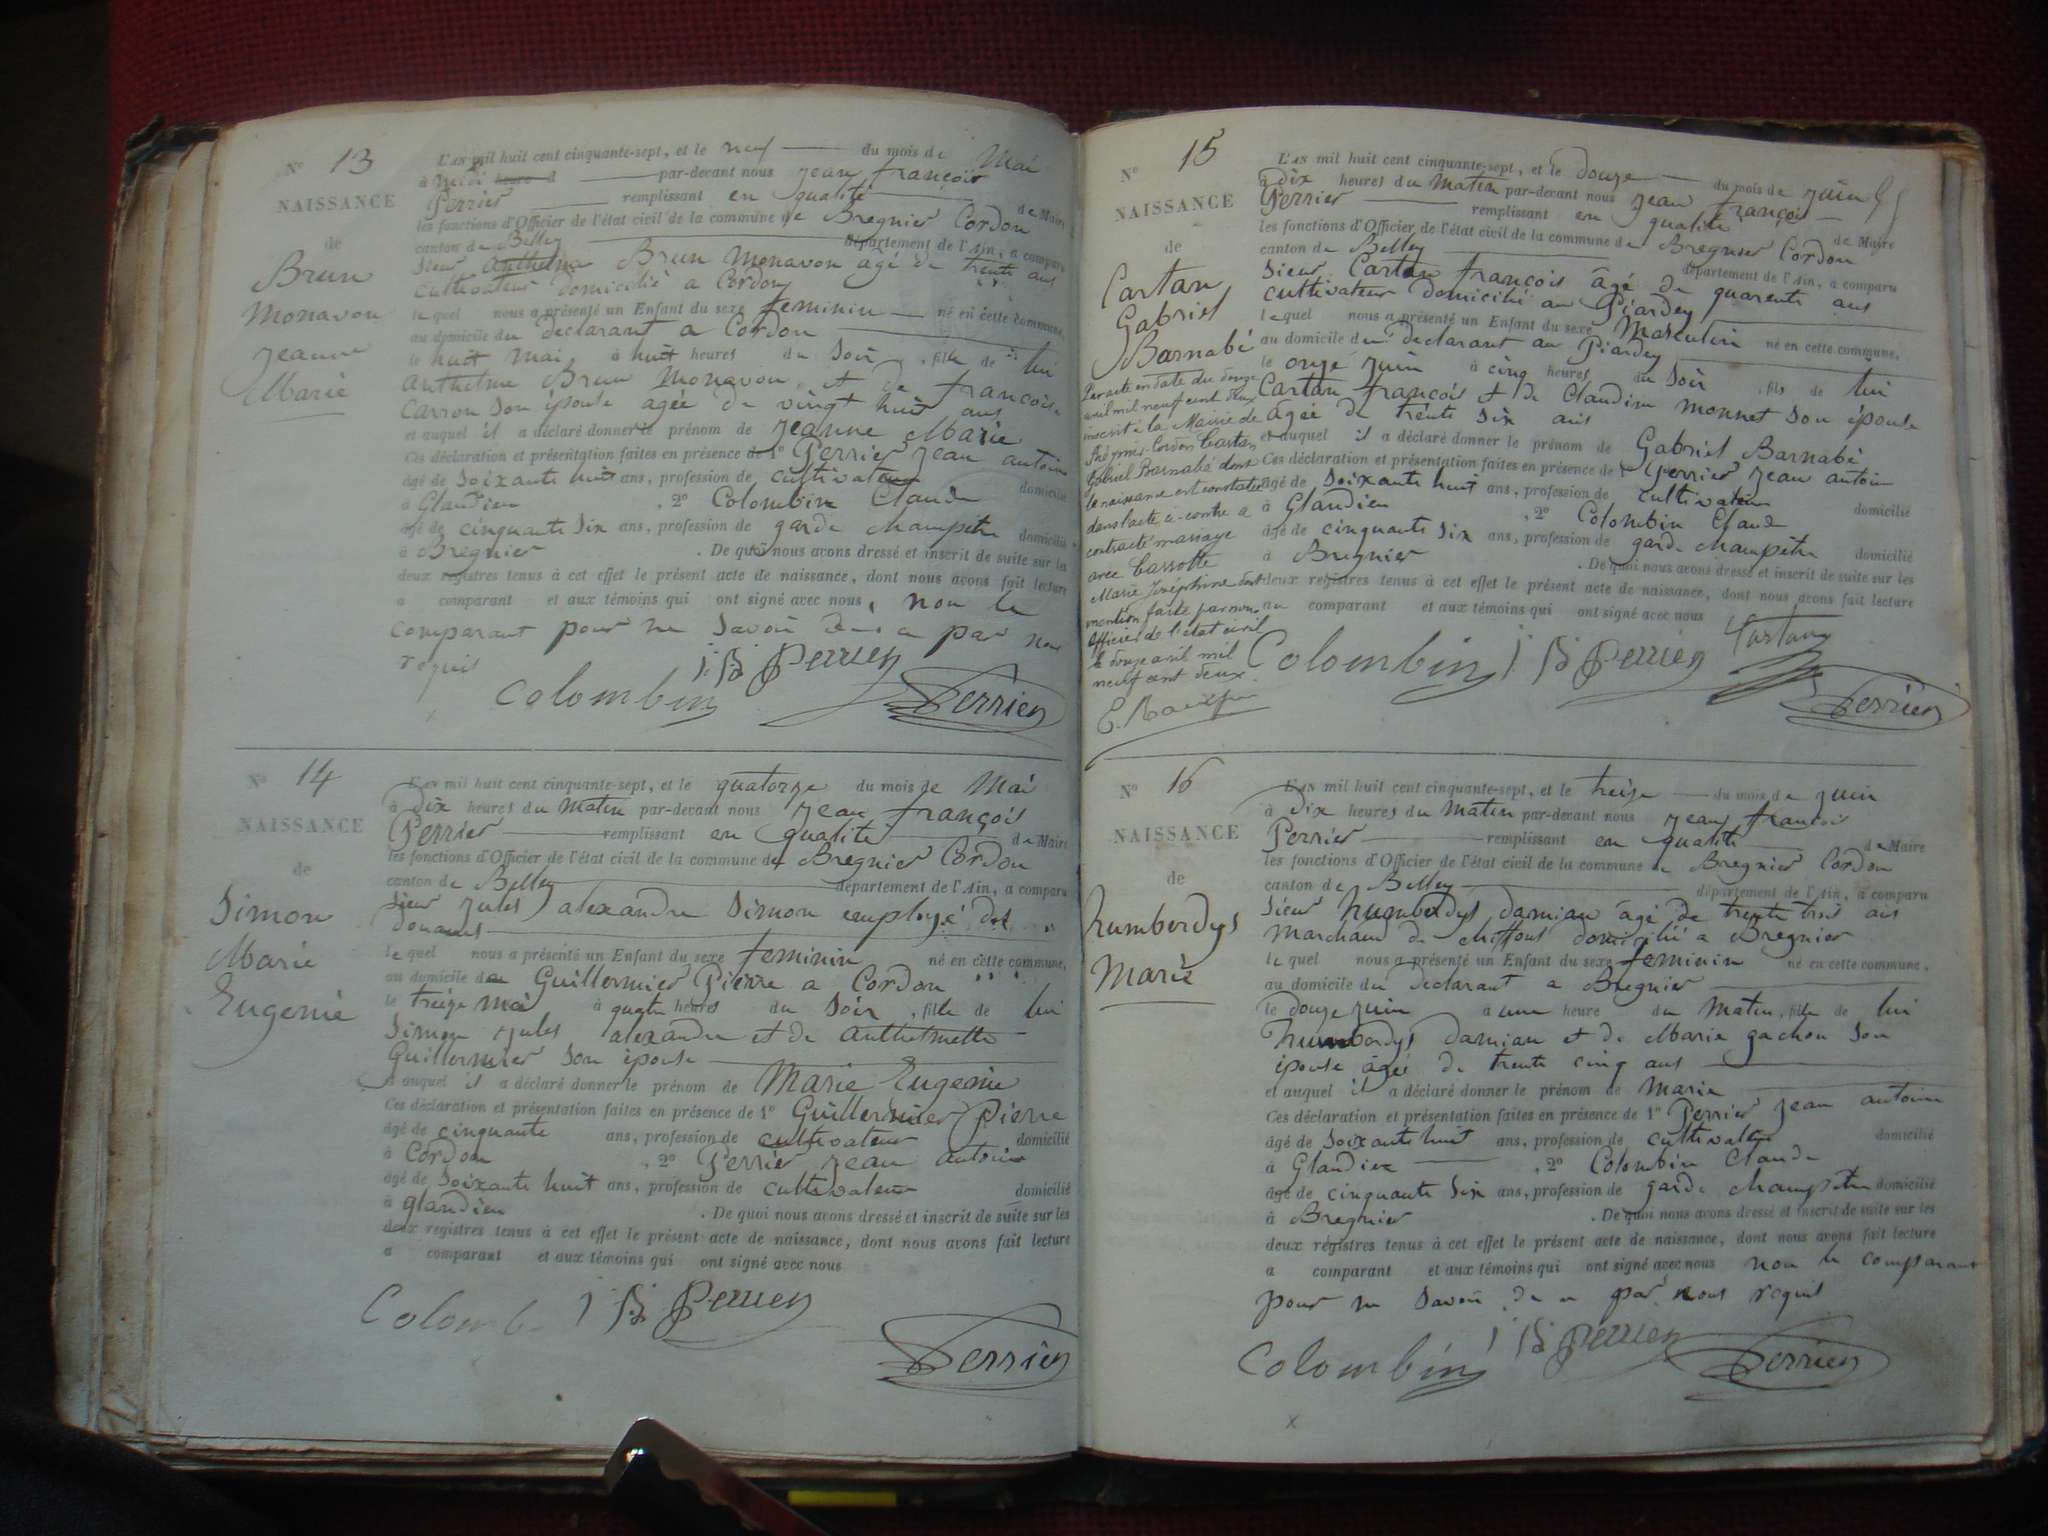 N° 13
NAISSANCE
de
Brun
Monavon
Jeanne
Marie
L'an mil huit cent cinquante-sept, et le neuf du mois de Mai
à midi heure d par-devant nous Jean françois
Perrier remplissant en qualité de Maire
les fonctions d'Officier de l'état civil de la commune de Bregnier Cordon
canton de Belley département de l'Ain, a comparu
Sieur Anthelme Brun Monavon agé de trente ans
cultivateur domicilié a Cordon
lequel nous a présenté un Enfant du sexe feminin né en cette commune,
au domicile du declarant a Cordon
le huit mai à huit heures du Soir, fille de lui
anthelme Brun Monavon et de françoise
Carron Son épouse agée de vingt huit ans
et auquel il a déclaré donner le prénom de Jeanne Marie
Ces déclaration et présentation faites en présence de 1° Perrier Jean antoine
âgé de Soixante huit ans, profession de cultivateur domicilié
à Glandieu, 2° Colombin Claude
âgé de cinquante Six ans, profession de garde champêtre domicilié
à Bregnier. De quoi nous avons dressé et inscrit de suite sur les
deux registres tenus à cet effet le présent acte de naissance, dont nous avons fait lecture
a comparant et aux témoins qui ont signé avec nous, non le
comparant pour ne Savoir de ce par nous
requis
Colombin J B Perrier Perrier
N° 14
NAISSANCE
de
Simon
Marie
Eugenie
L'an mil huit cent cinquante-sept, et le quatorze du mois de Mai
à dix heures du matin par-devant nous Jean françois
Perrier remplissant en qualité de Maire
les fonctions d'Officier de l'état civil de la commune de Bregnier Cordon
canton de Belley département de l'Ain, a comparu
Sieur Jules alexandre Simon employé des
douanes
lequel nous a présenté un Enfant du sexe feminin né en cette commune,
au domicile de Guillermier Pierre a Cordon
le treize mai à quatre heures du Soir, fille de lui
Simon Jules alexandre et de anthelmette
Guillermier Son épouse
et auquel il a déclaré donner le prénom de Marie Eugenie
Ces déclaration et présentation faites en présence de 1° Guillermier Pierre
âgé de cinquante ans, profession de cultivateur domicilié
à Cordon, 2° Perrier Jean antoine
âgé de Soixante huit ans, profession de cultivateur domicilié
à glandieu. De quoi nous avons dressé et inscrit de suite sur les
deux registres tenus à cet effet le présent acte de naissance, dont nous avons fait lecture
a comparant et aux témoins qui ont signé avec nous
Colomb J B Perrier Perrier
N° 15
NAISSANCE
de
Cartan
Gabriel
Barnabé
Par acte en date du douze
avril mil neuf cent deux
inscrit à la Mairie de
Brégnier-Cordon Cartan
Gabriel Barnabé dont
la naissance est constatée
dans l'acte ci-contre a
contracté mariage
avec
Marie Joséphine dont
mention faite par nous
Officier de l'état civil
le douze avril mil
neuf cent deux.
L'an mil huit cent cinquante-sept, et le douze du mois de Juin
à dix heures du matin par-devant nous Jean françois
Perrier remplissant en qualité de Maire
les fonctions d'Officier de l'état civil de la commune de Bregnier Cordon
canton de Belley département de l'Ain, a comparu
Sieur Cartan françois âgé de quarente ans
cultivateur domicilié au Piardey
lequel nous a présenté un Enfant du sexe Masculin né en cette commune,
au domicile du declarant au Piardey
le onze Juin à cinq heures du Soir, fils de lui
Cartan françois et de Claudine monnet Son épouse
âgée de trente Six ans
et auquel il a déclaré donner le prénom de Gabriel Barnabé
Ces déclaration et présentation faites en présence de 1° Perrier Jean antoine
âgé de Soixante huit ans, profession de cultivateur domicilié
à Glandieu, 2° Colombin Claude
âgé de cinquante Six ans, profession de garde champêtre domicilié
à Bregnier. De quoi nous avons dressé et inscrit de suite sur les
deux registres tenus à cet effet le présent acte de naissance, dont nous avons fait lecture
au comparant et aux témoins qui ont signé avec nous
Colombin J B Perrier Cartan Perrier
N° 16
NAISSANCE
de
humberdys
Marie
L'an mil huit cent cinquante-sept, et le treize du mois de Juin
à dix heures du matin par-devant nous Jean francois
Perrier remplissant en qualité de Maire
les fonctions d'Officier de l'état civil de la commune de Bregnier Cordon
canton de Belley département de l'Ain, a comparu
Sieur humberdys damian âgé de trente trois ans
marchand de chiffons domicilié a Bregnier
lequel nous a présenté un Enfant du sexe feminin né en cette commune,
au domicile du declarant a Bregnier
le douze juin à une heure du matin, fille de lui
humberdys damian et de Marie gachon Son
épouse âgée de trente cinq ans
et auquel il a déclaré donner le prénom de Marie
Ces déclaration et présentation faites en présence de 1° Perrier Jean antoine
âgé de Soixante huit ans, profession de cultivateur domicilié
à Glandieu, 2° Colombin Claude
âgé de cinquante Six ans, profession de garde champêtre domicilié
à Bregnier. De quoi nous avons dressé et inscrit de suite sur les
deux registres tenus à cet effet le présent acte de naissance, dont nous avons fait lecture
a comparant et aux témoins qui ont signé avec nous non le comparant
pour ne Savoir de ce par nous requis
Colombin J B Perrier Perrier